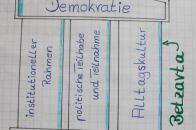 Demokratie
institutioneller
Rahmen
politische Teilhabe
und Teilnahme
Alltagskultur
Betzavta